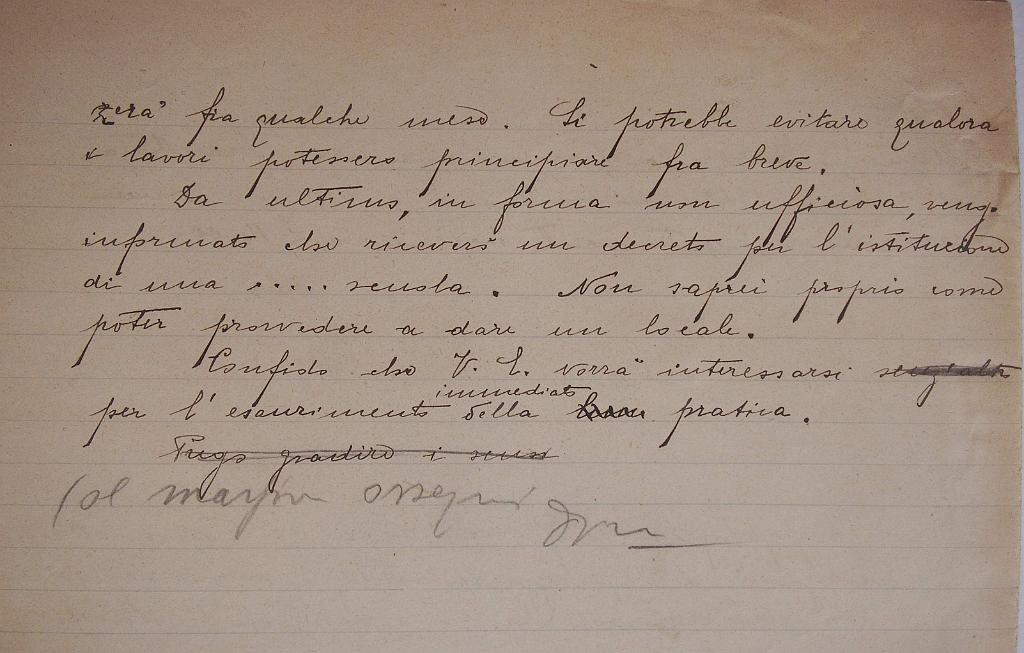 zerà fra qualche mese. Si potrebbe evitare qualora
i lavori potessero principiare fra breve.
Da ultimo, in forma non ufficiosa, veng.
informato che riceverò un decreto per l'istituzione
di una ..... scuola. Non saprei proprio come
poter provvedere a dare un locale.
Confido che V. E. vorrà interessarsi senz'altro
immediato
per l'esaurimento della pratica.
Prego gradire i sensi
Col maggior ossequio